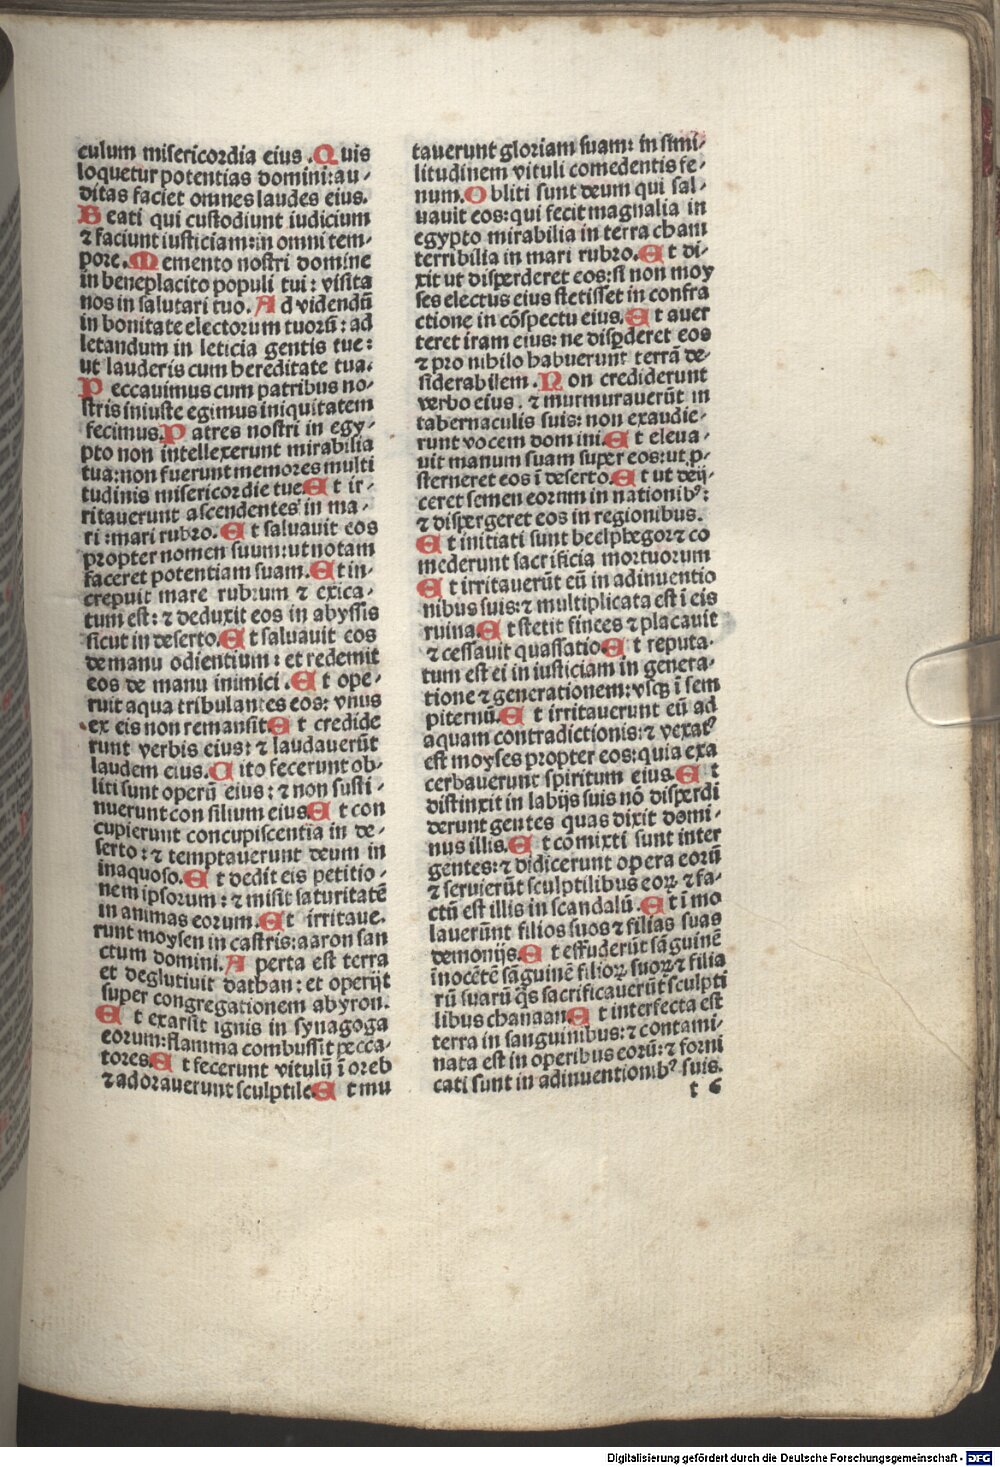 culum misericordia eius . Quis
loquetur potentias domini: au-
ditas faciet omnes laudes eius.
Beati qui custodiunt iudicium
⁊ faciunt iusticiam: in omni tem-
pore. Memento nostri domine
in beneplacito populi tui: visita
nos in salutari tuo. Ad videndū
in bonitate electorum tuorū: ad
letandum in leticia gentis tue:
ut lauderis cum hereditate tua.
Peccavimus cum patribus no-
stris iniuste egimus iniquitatem
fecimus. Patres nostri in egy-
pto non intellexerunt mirabilia
tua: non fuerunt memores multi
tudinis misericordie tue. Et ir-
ritauerunt ascendentes in ma-
ri: mari rubro. Et saluauit eos
propter nomen suum: ut notam
faceret potentiam suam. Et in-
crepuit mare rubrum ⁊ exica-
tum est: ⁊ deduxit eos in abyssis
sicut in deserto. Et saluauit eos
de manu odientium: et redemit
eos de manu inimici. Et ope-
ruit aqua tribulantes eos: vnus
ex eis non remansit. Et credide
runt verbis eius: ⁊ laudauerūt
laudem eius. Cito fecerunt ob-
liti sunt operū eius: ⁊ non susti-
nuerunt consilium eius. Et con
cupierunt concupiscentia in de-
serto: ⁊ temptauerunt deum in
inaquoso. Et dedit eis petitio-
nem ipsorum: ⁊ misit saturitatē
in animas eorum. Et irritaue.
runt moysen in castris: aaron san
ctum domini. Aperta est terra
et deglutiuit dathan: et operijt
super congregationem abyron.
Et exarsit ignis in synagoga
eorum: flamma combussit pecca-
tores. Et fecerunt vitulū ī oreb
⁊ adorauerunt sculptile. Et mu
tauerunt gloriam suam: in simi-
litudinem vituli comedentis fe-
num. Obliti sunt deum qui sal-
uauit eos: qui fecit magnalia in
egypto mirabilia in terra cham
terribilia in mari rubro. Et di-
xit ut disperderet eos: si non moy
ses electus eius stetisset in confra
ctione in cōspectu eius. Et auer
teret iram eius: ne disꝑderet eos
⁊ pro nihilo habuerunt terrā de-
siderabilem. Non crediderunt
verbo eius . ⁊ murmurauerūt in
tabernaculis suis: non exaudie-
runt vocem domini. Et eleua-
uit manum suam super eos: ut ꝓ-
sterneret eos ī deserto. Et ut deij-
ceret semen eorum in nationibꝰ:
⁊ dispergeret eos in regionibus.
Et initiati sunt beelphegor ⁊ co
mederunt sacrificia mortuorum
Et irritauerūt eū in adinuentio
nibus suis: ⁊ multiplicata est ī eis
ruina. Et stetit finees ⁊ placauit
⁊ cessauit quassatio. Et reputa-
tum est ei in iusticiam in genera-
tione ⁊ generationem: vsqꝫ ī sem
piternū. Et irritauerunt eū ad
aquam contradictionis: ⁊ vexatꝰ
est moyses propter eos: quia exa
cerbauerunt spiritum eius. Et
distinxit in labijs suis nō disperdi
derunt gentes quas dixit domi-
nus illis. Et comixti sunt inter
gentes: ⁊ didicerunt opera eorū
⁊ seruierūt sculptilibus eoꝝ ⁊ fa-
ctū est illis in scandalū. Et ī mo
lauerūnt filios suos ⁊ filias suas
demonijs. Et effuderūt sāguinē
īnocētē sāguinē filioꝝ suoꝝ ⁊ filia
rū suarū qs̄ sacrificauerūt sculpti
libus chanaan. Et interfecta est
terra in sanguinibus: ⁊ contami-
nata est in operibus eorū: ⁊ forni
cati sunt in adinuentionibꝰ suis.
t 6
Digitalisierung gefördert durch die Deutsche Forschungsgemeinschaft - DFG